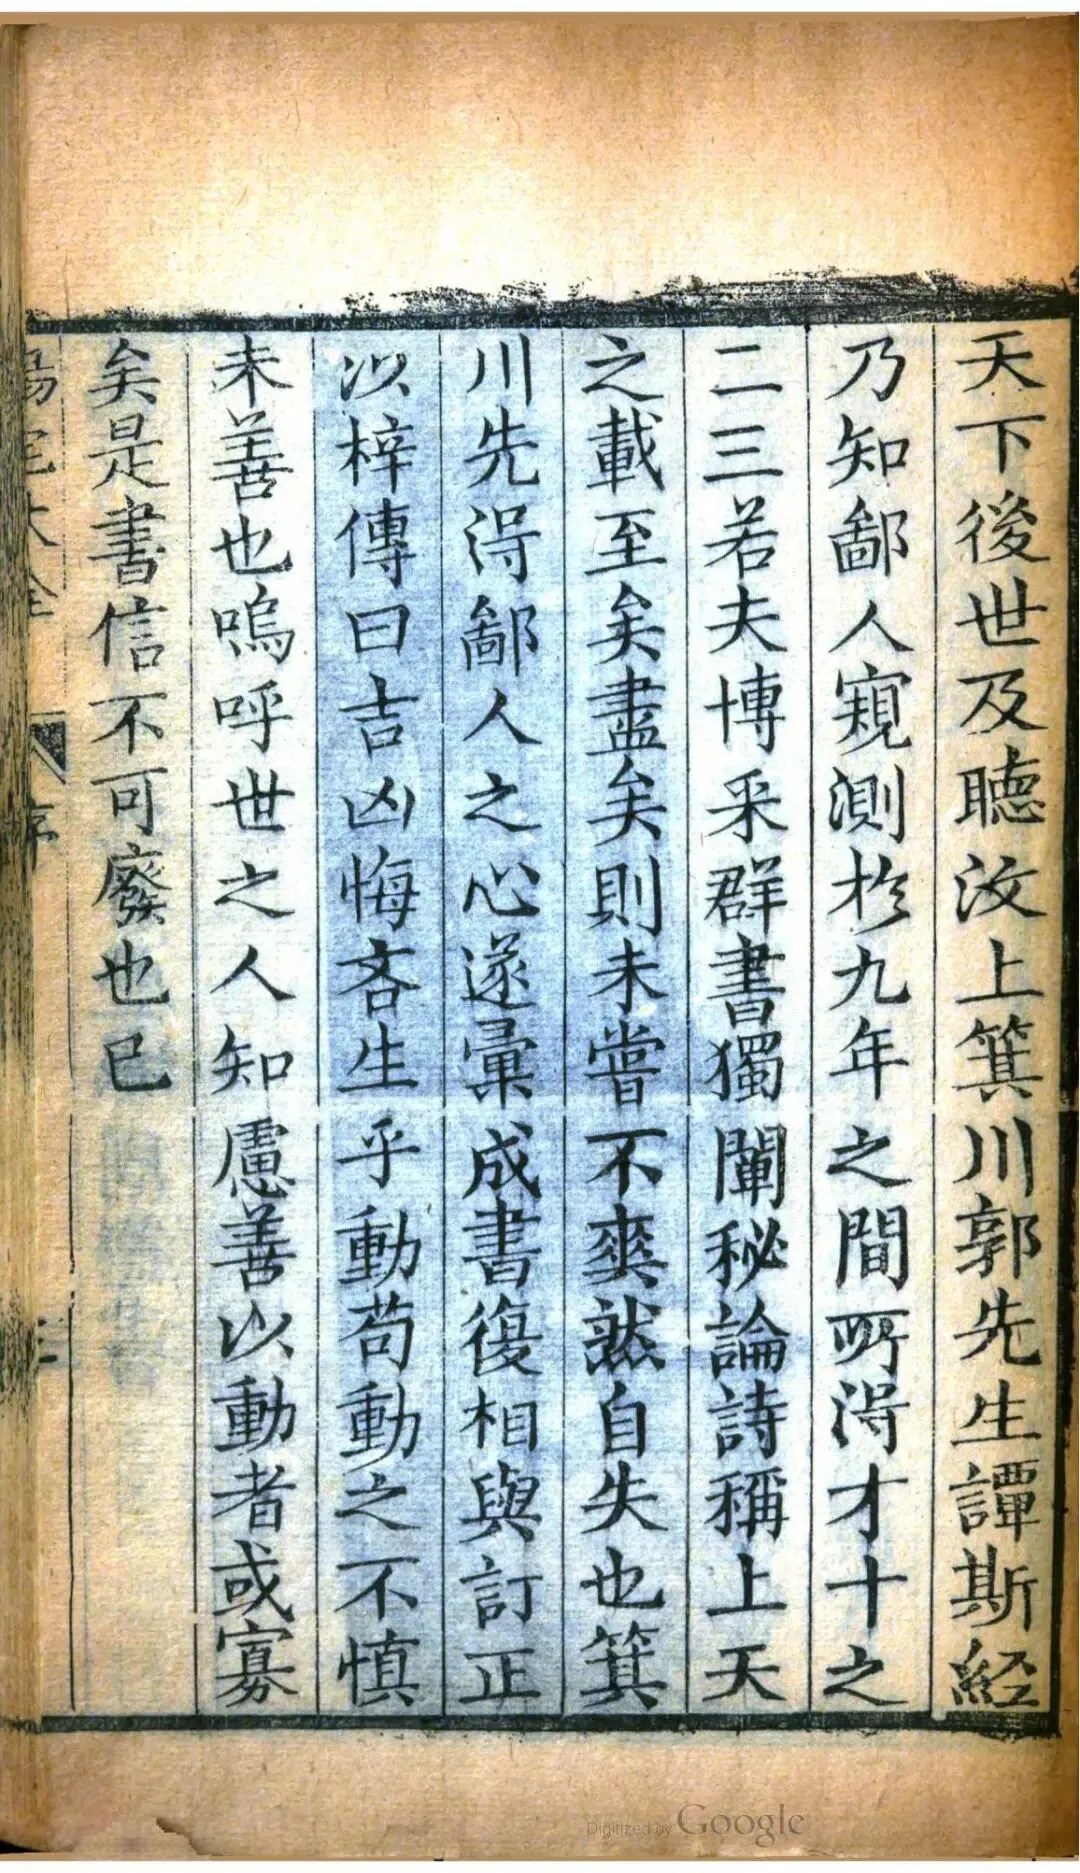 天下後世及聴汶上箕川郭先生譚斯經
乃知鄙人窺測於九年之間所得才十之
二三若夫博采群書獨闡秘論詩稱上天
之載至矣盡矣則未嘗不爽然自失也箕
川先得鄙人之心遂彙成書復相與訂正
以梓傳曰吉凶悔吝生乎動苟動之不慎
未善也嗚呼世之人知慮善以動者或寡
矣是書信不可廢也已
Digitized by Google